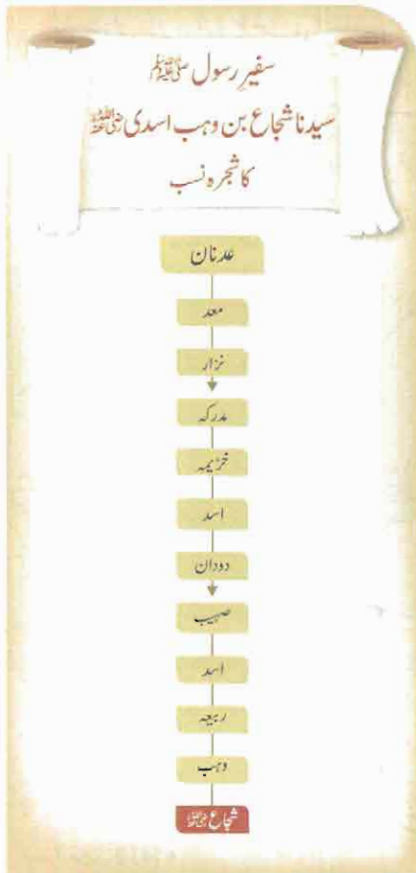 سفیرِ رسول ﷺ
سیدنا شجاع بن وہب اسدی رضی اللہ عنہ
کا شجرہ نسب
عدنان
معد
نزار
مدرکہ
خزیمہ
اسد
دودان
صہیب
اسد
ربیعہ
وہب
شجاع رضی اللہ عنہ